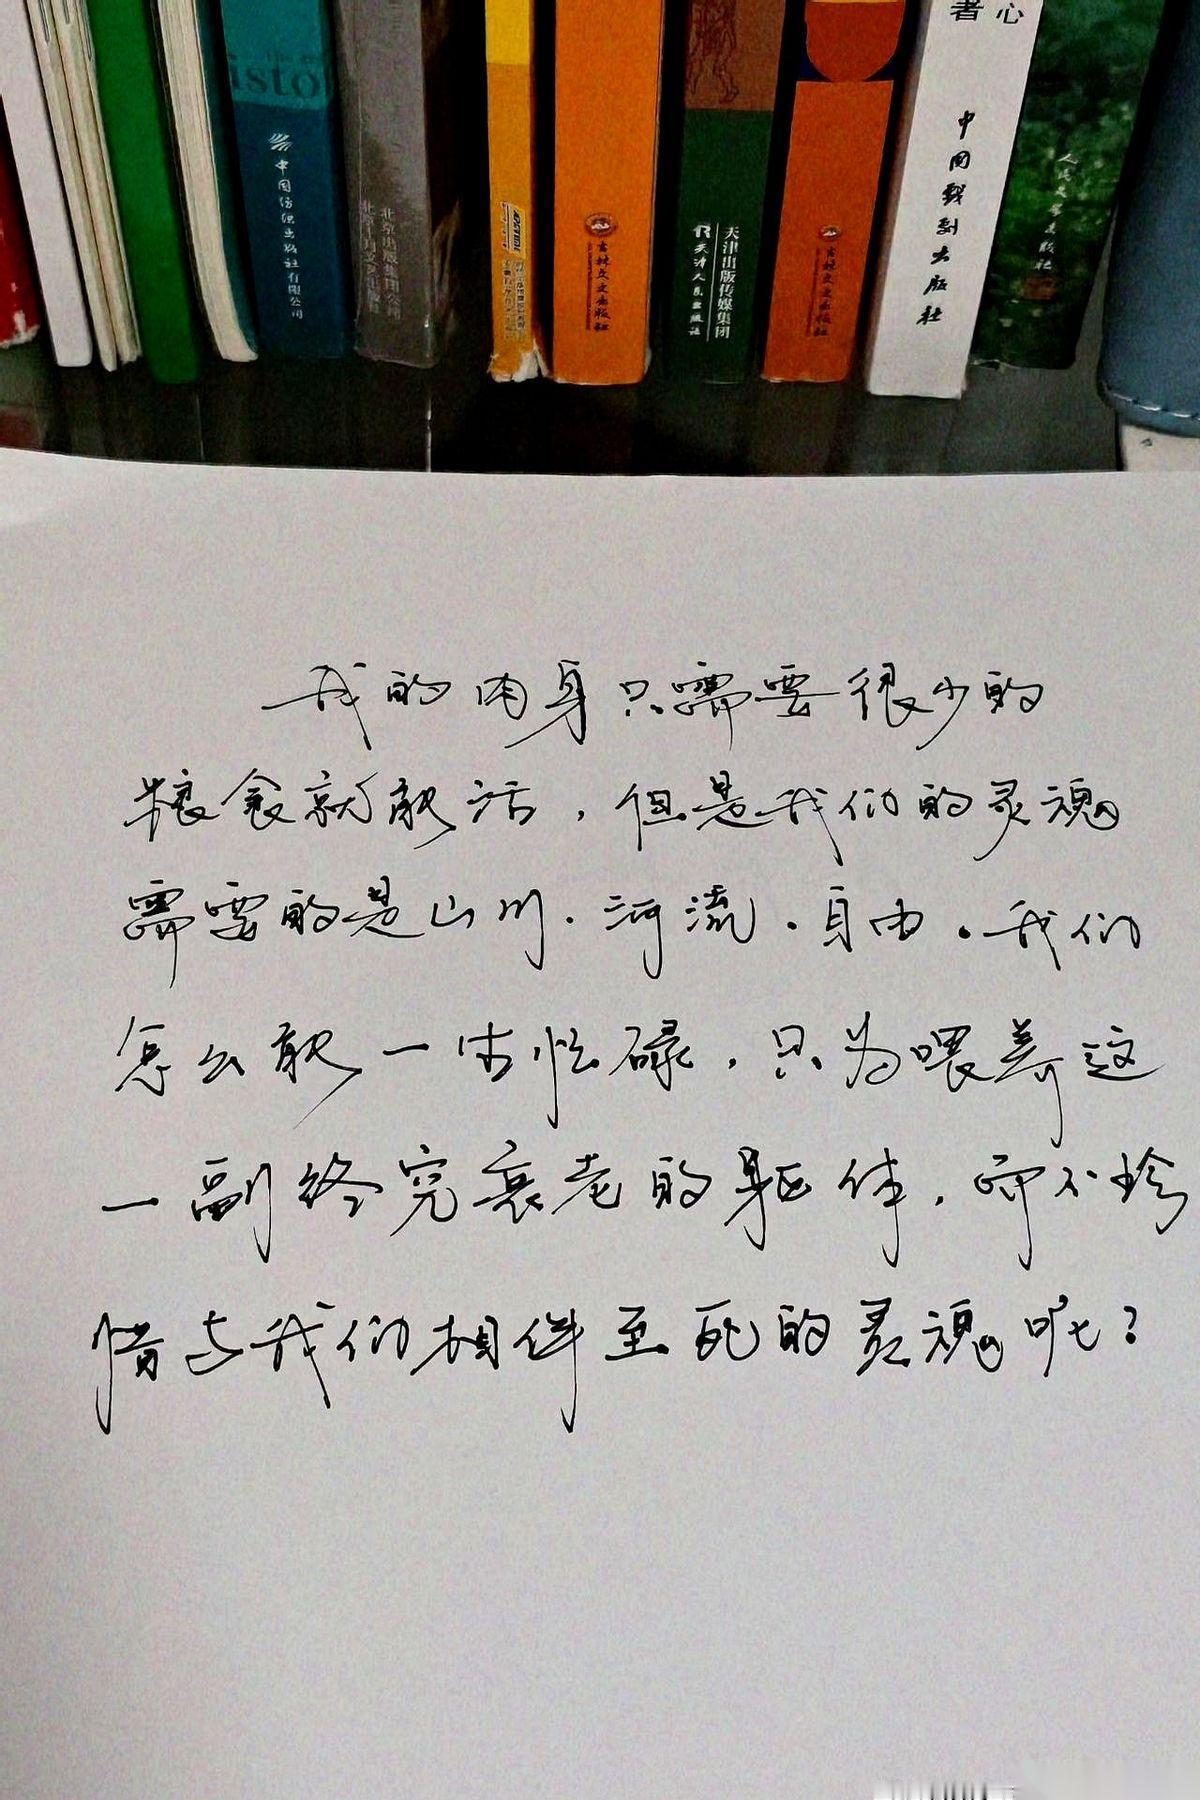 者 心
isto
中国纺织出版社有限公司
北京出版集团公司
吉林文史出版社
天津出版传媒集团
天津人民出版社
吉林文史出版社
中国戏剧出版社
人民文学出版社
我的肉身只需要很少的
粮食就能活，但是我们的灵魂
需要的是山川、河流、自由。我们
怎么能一生忙碌，只为喂养这
一副终究衰老的躯体，而不珍
惜与我们相伴至死的灵魂呢？